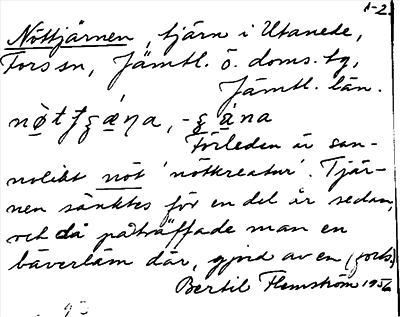 1-2.
Nöttjärnen, tjärn i Utanede,
Fors sn, Jämtl. ö. doms. tg,
Jämtl. län.
Förleden är san-
nolikt nöt 'nötkreatur'. Tjär-
nen sänktes för en del år sedan,
och då påträffade man en
bäverläm där, gjord av en
Bertil Flemström 1956